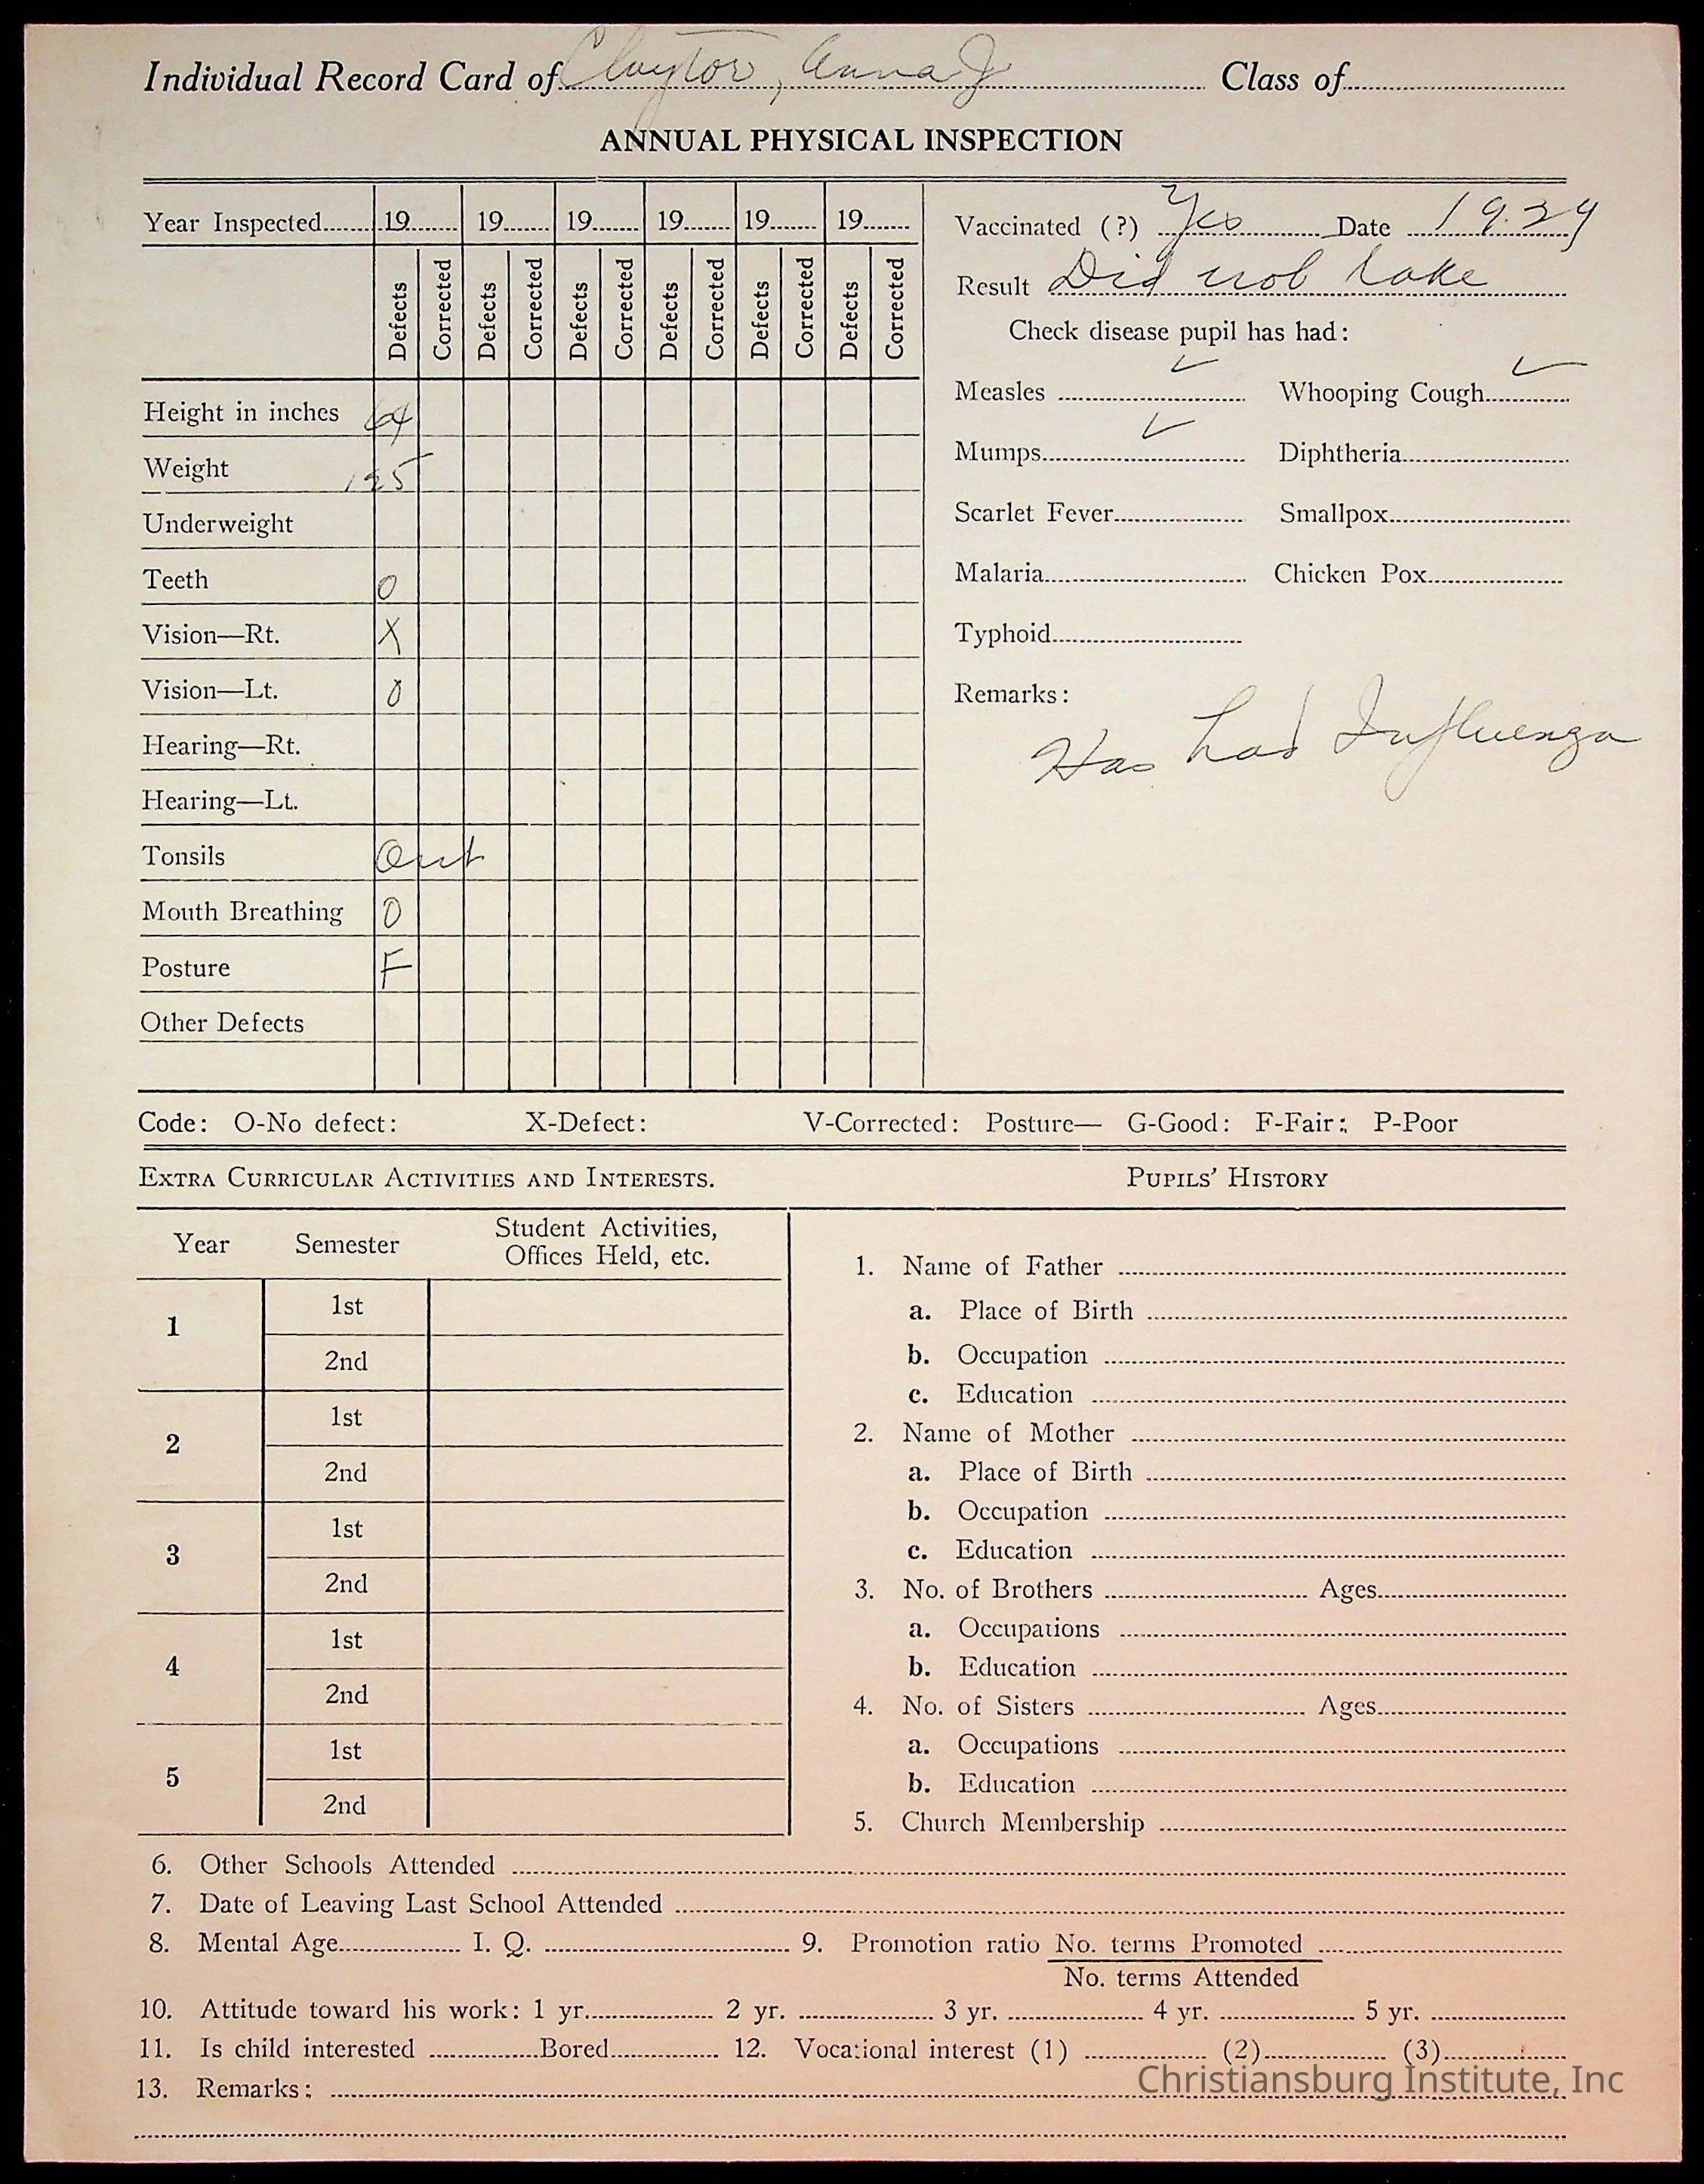 Individual Record Card of Clayton, Anna J Class of
ANNUAL PHYSICAL INSPECTION
Year Inspected 19 19 19 19 19 19
Defects Corrected Defects Corrected Defects Corrected Defects Corrected Defects Corrected Defects Corrected
Height in inches 64
Weight
Underweight
Teeth O
Vision—Rt. X
Vision—Lt. O
Hearing—Rt.
Hearing—Lt.
Tonsils Out
Mouth Breathing O
Posture F
Other Defects
Vaccinated (?) Yes Date 1929
Result Did not take
Check disease pupil has had:
Measles ✓ Whooping Cough ✓
Mumps ✓ Diphtheria
Scarlet Fever Smallpox
Malaria Chicken Pox
Typhoid
Remarks:
Has had Influenza
Code: O-No defect: X-Defect: V-Corrected: Posture— G-Good: F-Fair: P-Poor
EXTRA CURRICULAR ACTIVITIES AND INTERESTS.
Year Semester Student Activities,
Offices Held, etc.
1 1st
2nd
2 1st
2nd
3 1st
2nd
4 1st
2nd
5 1st
2nd
PUPILS' HISTORY
1. Name of Father
a. Place of Birth
b. Occupation
c. Education
2. Name of Mother
a. Place of Birth
b. Occupation
c. Education
3. No. of Brothers Ages
a. Occupations
b. Education
4. No. of Sisters Ages
a. Occupations
b. Education
5. Church Membership
6. Other Schools Attended
7. Date of Leaving Last School Attended
8. Mental Age I. Q. 9. Promotion ratio No. terms Promoted
No. terms Attended
10. Attitude toward his work: 1 yr. 2 yr. 3 yr. 4 yr. 5 yr.
11. Is child interested Bored 12. Vocational interest (1) (2) (3)
13. Remarks:
Christiansburg Institute, Inc